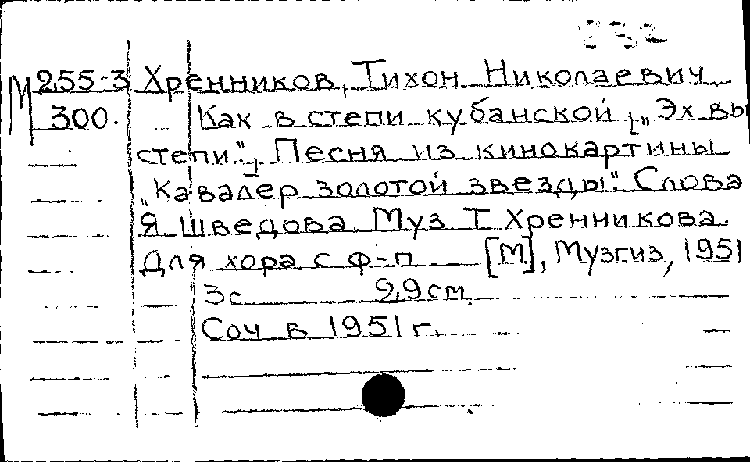 232
М 255-3 Хренников, Тихон Николаевич
300. Как в степи кубанской [„Эх вы
степи"]. Песня из кинокартины
„Кавалер золотой звезды". Слова
Я Шведова Муз Т. Хренникова.
Для хора с ф-п — [М], Музгиз, 1951
3с 29 см.
Соч в 1951 г.